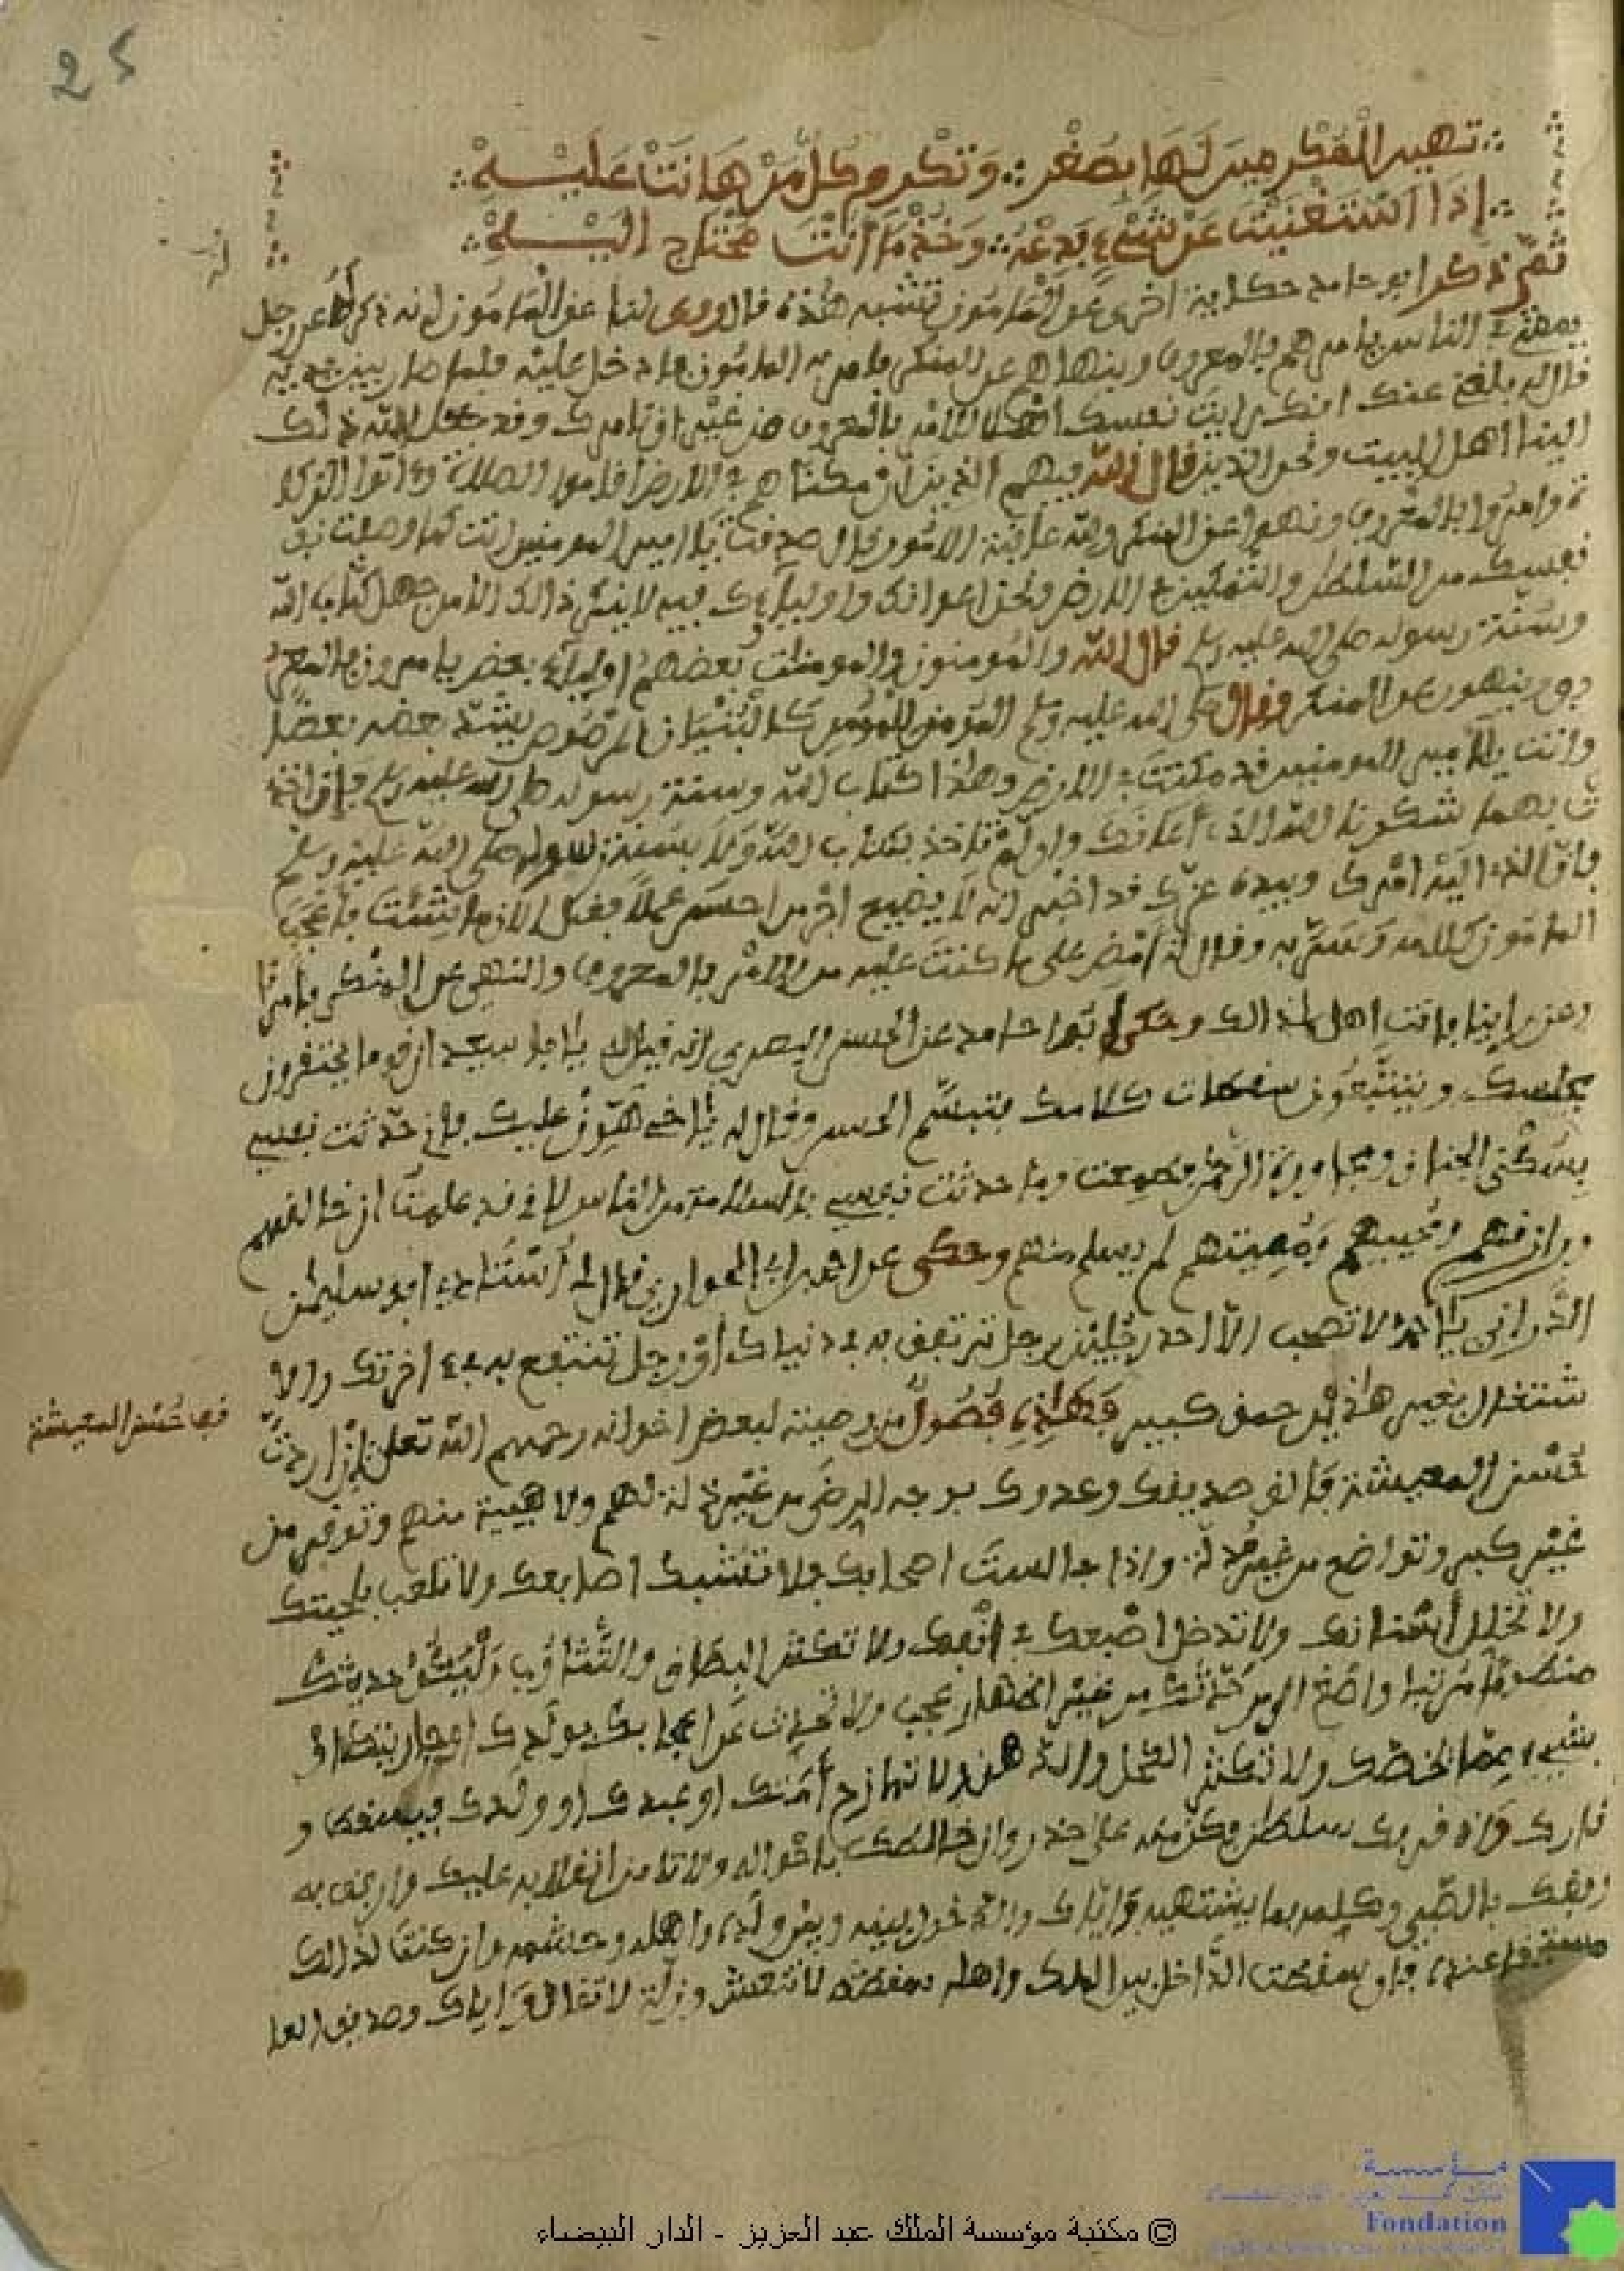 25
تهين المكرمين لها بصغر وتكرم كل من هانت عليه
إذا استغنيت عن شيء فدعه وخذ ما أنت محتاج اليه
ثم ذكر ابو حامد حكاية اخرى عن المامون تشبه هذه قال روى لنا عن المامون انه ذكر له عن رجل
يمشي في الناس يامرهم بالمعروف وينهاهم عن المنكر فامر به المامون فادخل عليه فلما صار بين يديه
قال له بلغني عنك انك رايت نفسك اهلا للامر بالمعروف من غير ان نامرك وقد جعل الله ذلك
الينا اهل البيت ونحن الذين قال الله فيهم الذين ان مكناهم في الارض اقاموا الصلاة وءاتوا الزكا
ة وامروا بالمعروف ونهوا عن المنكر ولله عاقبة الامور فقال صدقت يا امير المومنين انت كما وصفت به
نفسك من السلطان والتمكين في الارض ونحن اعوانك واولياؤك فيه لا ينكر ذالك الا من جهل كتاب الله
وسنة رسوله صلى الله عليه وسلم قال الله والمومنون والمومنات بعضهم اولياء بعض يامرون بالمعر
وف وينهون عن المنكر وقال صلى الله عليه وسلم المومن للمومن كالبنيان المرصوص يشد بعضه بعضا
وانت يا امير المومنين قد مكنت في الارض وهذا كتاب الله وسنة رسوله صلى الله عليه وسلم فإن اخذ
ت بهما شكرنا الله الذي أعانك وإن لم تاخذ بكتاب الله ولا بسنة رسوله صلى الله عليه وسلم
فان الذي اليه امرك وبيده عزك قد اخبر انه لا يضيع اجر من احسن عملا فقل الان ما شئت فأعجب
المامون كلامه وسر به وقال له امض على ما كنت عليه من الامر بالمعروف والنهي عن المنكر بامرنا
وعن راينا فانت اهل لذالك وحكى ابو حامد عن الحسن البصري انه قيل له يا ابا سعيد ان قوما يحتقرون
مجلسك ويتتبعون سقطات كلامك فتبسم الحسن وقال له يا اخي هون عليك فاني حدثت نفسي
بسكنى الجنان ومجاورة الرحمن فطمعت وما حدثت نفسي بالسلامة من الناس لاني قد علمت ان خالقهم
ورازقهم ومحييهم ومميتهم لم يسلم منهم وحكى عن احمد بن ابي الحواري قال لي أستاذي ابو سليمن
الدراني يا احمد لا تصحب الا احد رجلين رجل ترتفق به في دنياك أو رجل تنتفع به في اخرتك والا
شتغال بغير هاذين حمق كبير فهذه فصول من وصية لبعض اخوانه رحمهم الله تعلى إن اردت
حسن المعيشة فالق صديقك وعدوك بوجه الرضى من غير ذلة لهم ولا هيبة منهم وتوقر من
غير كبر وتواضع من غير مذلة واذا جالست اصحابك فلا تشبك اصابعك ولا تلعب بلحيتك
ولا تخلل أسنانك ولا تدخل اصبعك في انفك ولا تكثر البصاق والتثاؤب وليكن حديثك
منظوما مرتبا واصغ الى من حدثك من غير اظهار عجب ولا تحدث عن اعجابك بولدك او جاريتك او
بشيء مما يخصك ولا تكثر الكحل والدهن ولا تمازح أمتك او عبدك او ولدك فيسقط و
قارك وان قربك سلطن فكن منه على حذر وان خالطك باحواله ولا تامن انقلابه عليك وارفق به
رفقك بالصبي وكلمه بما يشتهيه واياك والدخول بينه وبين ولده واهله وحشمه وان كنت لذالك
مستحقا عنده فان سقطت الداخل بين الملك واهله سقطة لا تنتعش وزلة لا تقال واياك وصديق العا
في حسن المعيشة
© مكتبة مؤسسة الملك عبد العزيز - الدار البيضاء
مؤسسة
Fondation